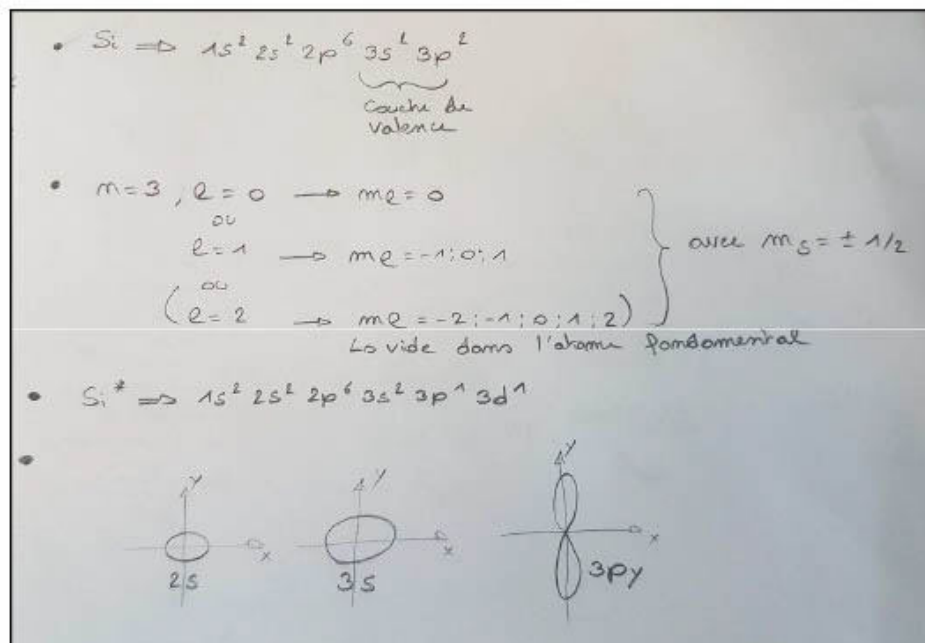 • Si ⇒ 1s² 2s² 2p⁶ 3s² 3p²
Couche de
valence
• n=3, l=0 → ml=0
ou
l=1 → ml=-1;0;1
ou
(l=2 → ml=-2;-1;0;1;2)
} avec ms=±1/2
↳ vide dans l'atome fondamental
• Si* ⇒ 1s² 2s² 2p⁶ 3s² 3p¹ 3d¹
•
y x 2s
y x 3s
y x 3py